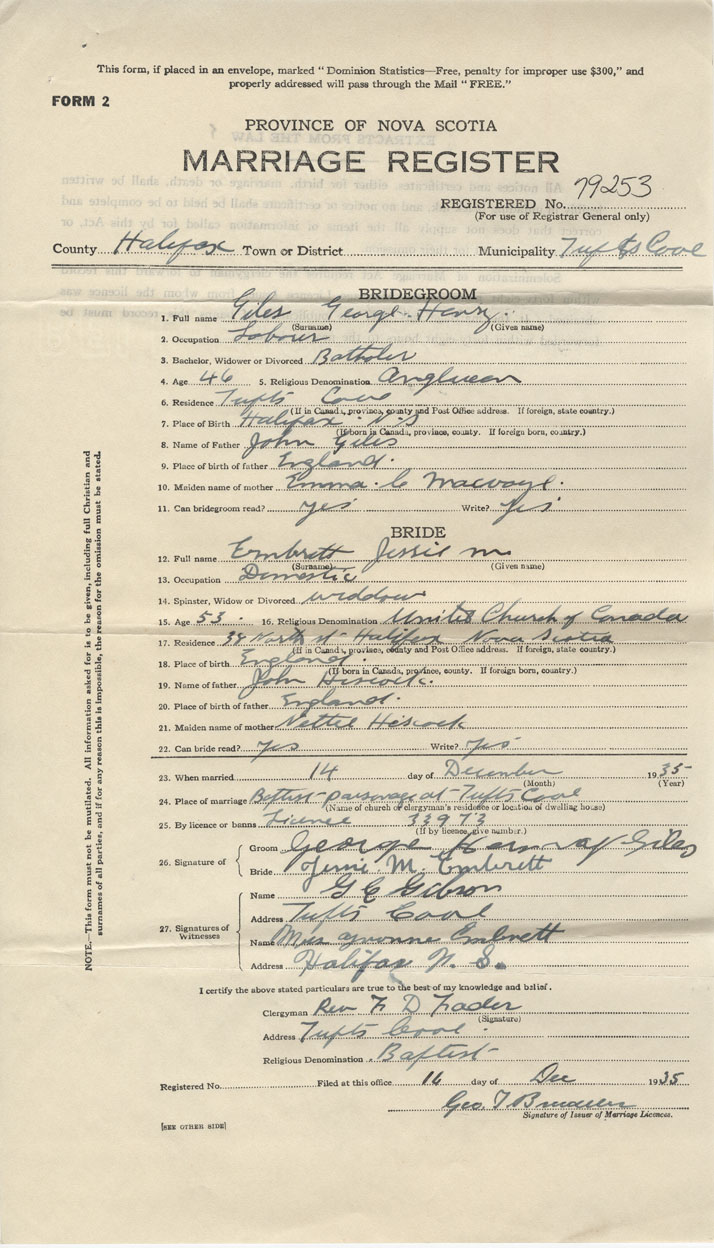 This form, if placed in an envelope, marked "Dominion Statistics—Free, penalty for improper use $300," and
properly addressed will pass through the Mail "FREE."
FORM 2
PROVINCE OF NOVA SCOTIA
MARRIAGE REGISTER
REGISTERED No. 79253
(For use of Registrar General only)
County Halifax Town or District Municipality Tufts Cove
BRIDEGROOM
1. Full name Giles George Henry.
(Surname) (Given name)
2. Occupation Labour
3. Bachelor, Widower or Divorced Batholer
4. Age 46 5. Religious Denomination Anglican
6. Residence Tufts Cove
(If in Canada, province, county and Post Office address. If foreign, state country.)
7. Place of Birth Halifax N.S
(If born in Canada, province, county. If foreign born, country.)
8. Name of Father John Giles
9. Place of birth of father England.
10. Maiden name of mother Emma C
11. Can bridegroom read? yes Write? yes
BRIDE
12. Full name Embrett Jessie M
(Surname) (Given name)
13. Occupation Domestic
14. Spinster, Widow or Divorced widdow
15. Age 53. 16. Religious Denomination United Church of Canada
17. Residence North St Halifax Nova Scotia
(If in Canada, province, county and Post Office address. If foreign, state country.)
18. Place of birth England.
(If born in Canada, province, county. If foreign born, country.)
19. Name of father John Hiscock.
20. Place of birth of father England.
21. Maiden name of mother Nettie Hiscock
22. Can bride read? yes Write? yes
23. When married 14 day of December 1935
(Month) (Year)
24. Place of marriage Baptist parsonage at Tufts Cove
(Name of church or clergyman's residence or location of dwelling house)
25. By licence or banns Licence 33973
(If by licence, give number.)
26. Signature of
Groom George Henry Giles
Bride Jessie M. Embrett
27. Signatures of Witnesses
Name G C Gibson
Address Tufts Cove
Name Miss Yvonne Embrett
Address Halifax N. S.
I certify the above stated particulars are true to the best of my knowledge and belief.
Clergyman Rev F D Fader
(Signature)
Address Tufts Cove.
Religious Denomination Baptist
Registered No. Filed at this office 16 day of Dec 1935
Geo. T.
Signature of Issuer of Marriage Licences.
[SEE OTHER SIDE]
NOTE.—This form must not be mutilated. All information asked for is to be given, including full Christian and
surnames of all parties, and if for any reason this is impossible, the reason for the omission must be stated.